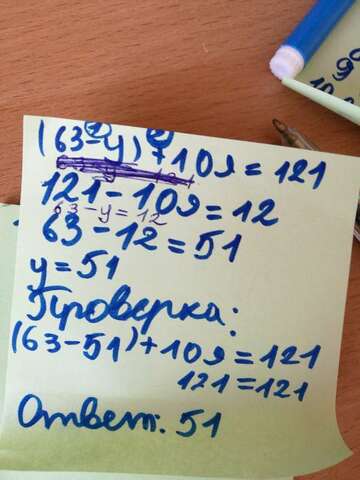 (63-y)+109=121
121-109=12
63-y=12
63-12=51
y=51
Проверка:
(63-51)+109=121
121=121
Ответ: 51